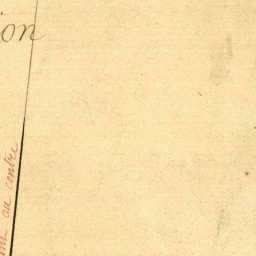 ion
au centre